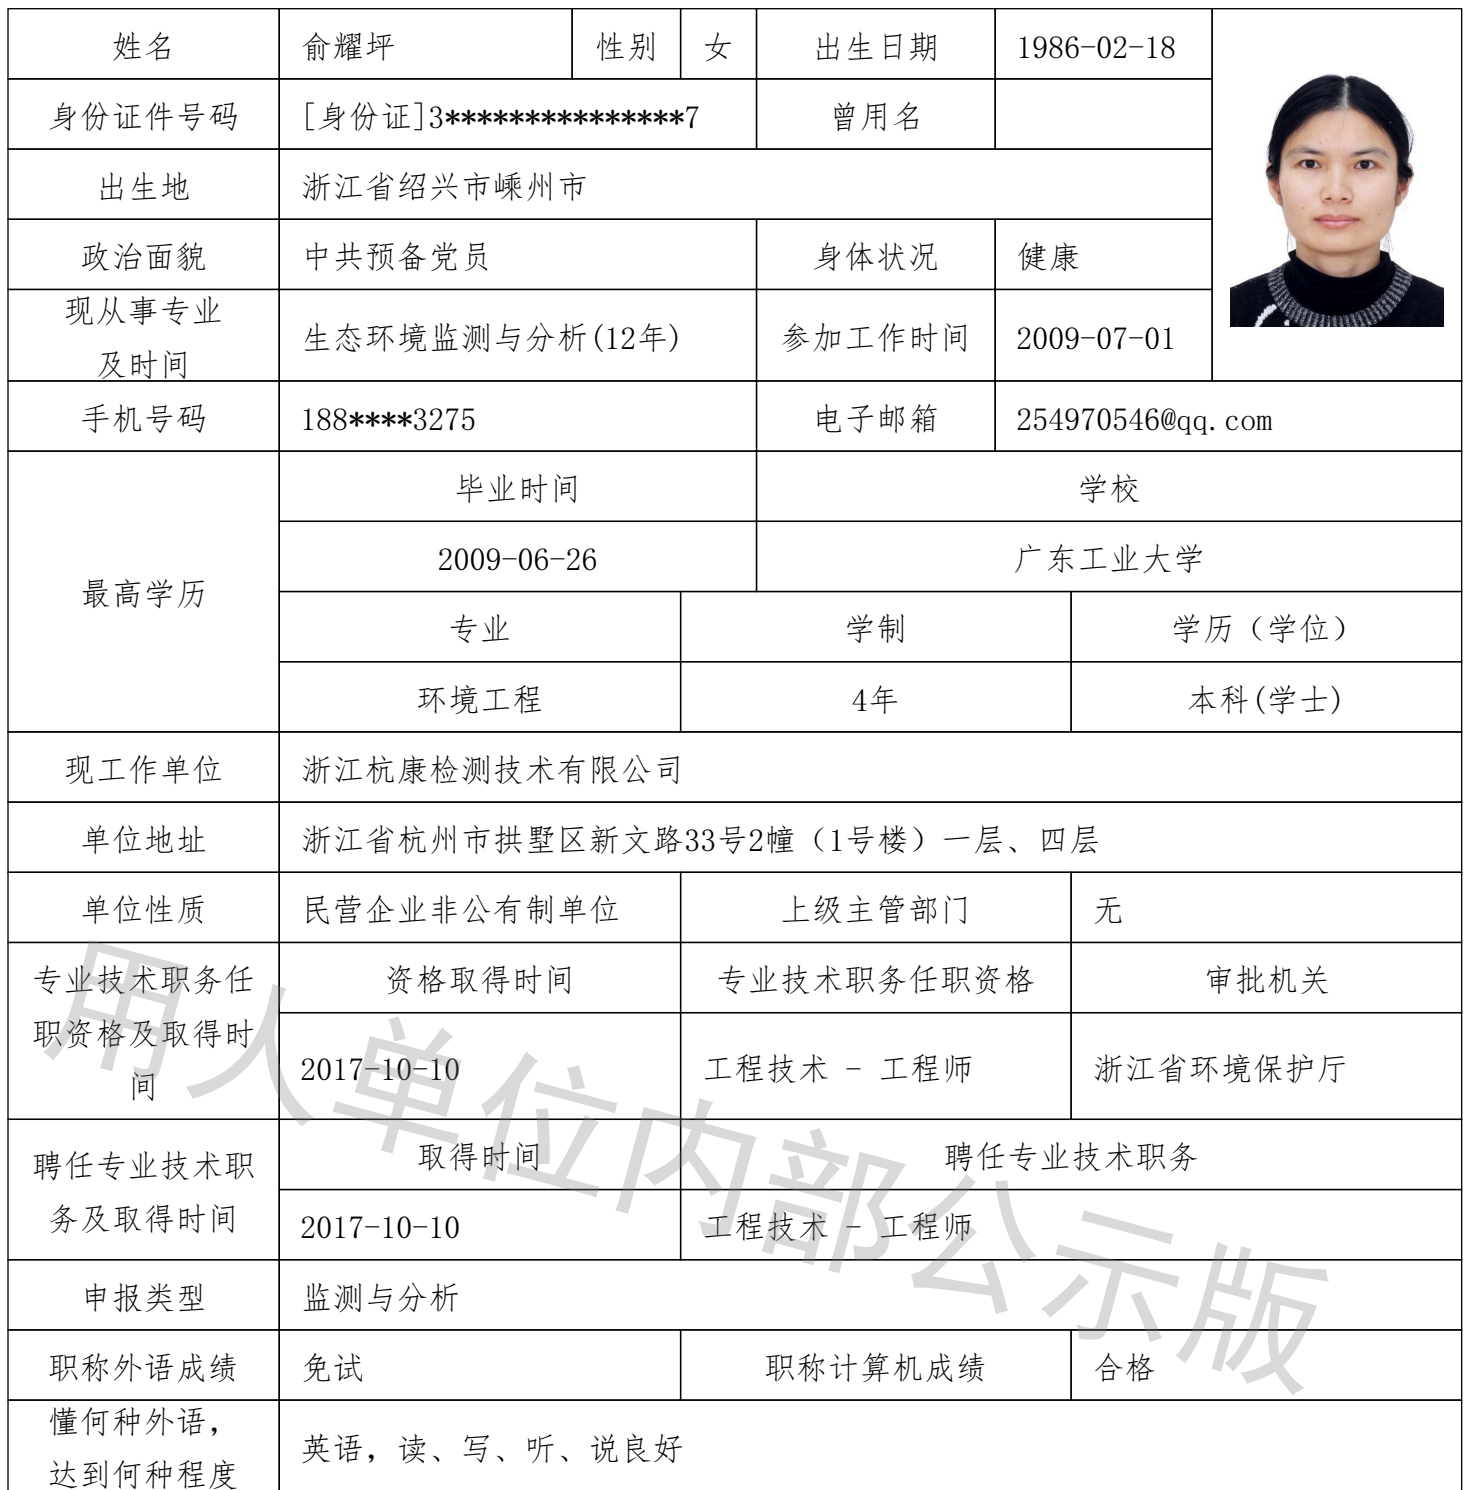 姓名 俞耀坪 性别 女 出生日期 1986-02-18
身份证件号码 [身份证]3***************7 曾用名
出生地 浙江省绍兴市嵊州市
政治面貌 中共预备党员 身体状况 健康
现从事专业
及时间 生态环境监测与分析(12年) 参加工作时间 2009-07-01
手机号码 188****3275 电子邮箱 254970546@qq.com
最高学历 毕业时间 学校
2009-06-26 广东工业大学
专业 学制 学历（学位）
环境工程 4年 本科(学士)
现工作单位 浙江杭康检测技术有限公司
单位地址 浙江省杭州市拱墅区新文路33号2幢（1号楼）一层、四层
单位性质 民营企业非公有制单位 上级主管部门 无
专业技术职务任
职资格及取得时
间 资格取得时间 专业技术职务任职资格 审批机关
2017-10-10 工程技术 - 工程师 浙江省环境保护厅
聘任专业技术职
务及取得时间 取得时间 聘任专业技术职务
2017-10-10 工程技术 - 工程师
申报类型 监测与分析
职称外语成绩 免试 职称计算机成绩 合格
懂何种外语，
达到何种程度 英语，读、写、听、说良好
用人单位内部公示版